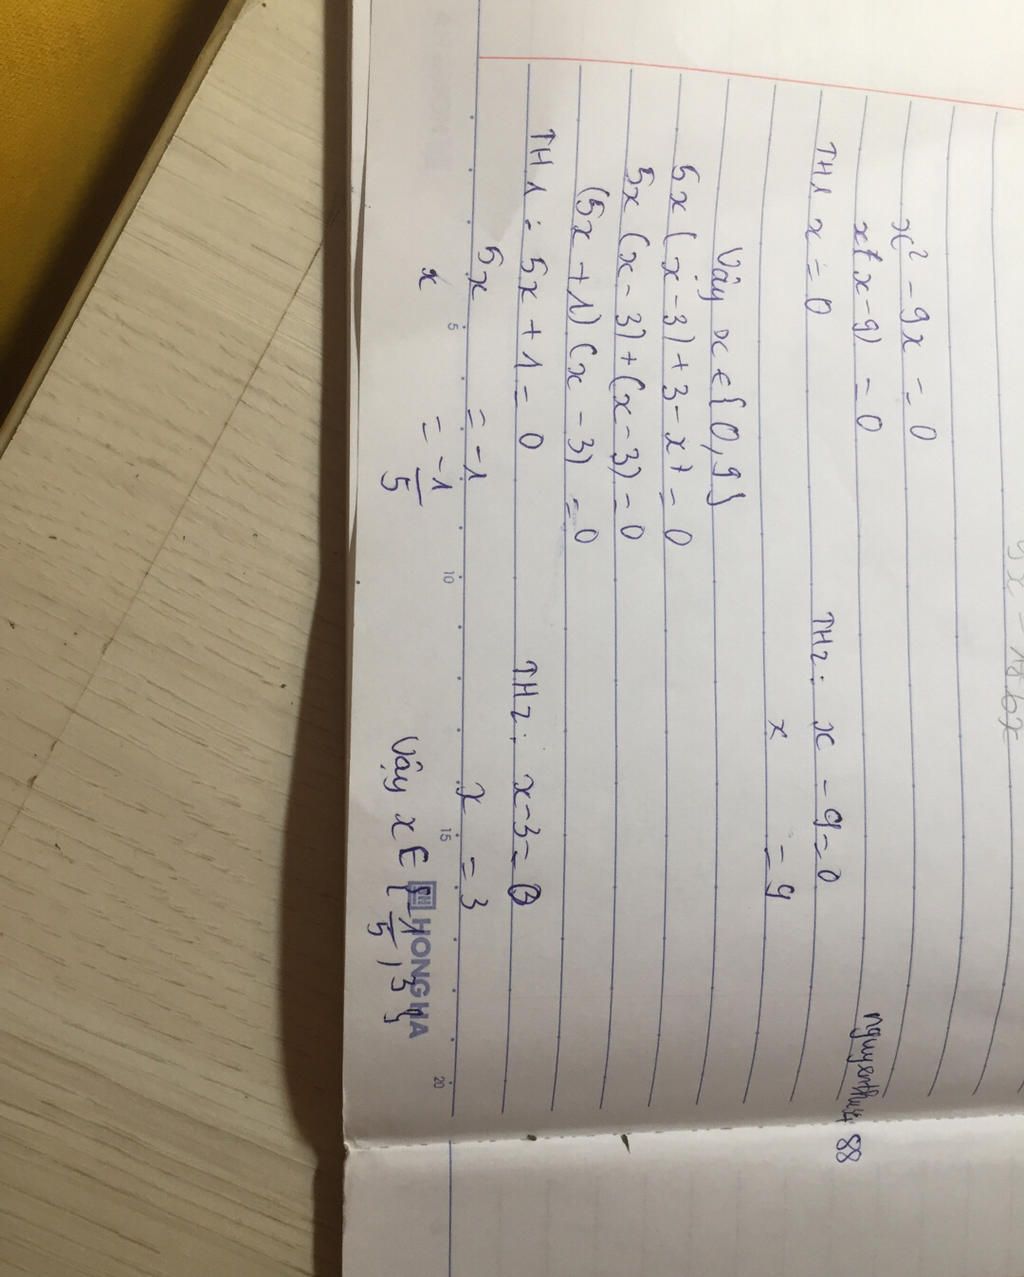 x² - 9x = 0
x(x-9) = 0
TH1 x = 0 TH2: x - 9 = 0
x = 9
Vậy x ∈ {0,9}
5x (x-3) + 3 - x = 0
5x (x-3) + (x-3) = 0
(5x + 1) (x - 3) = 0
TH1: 5x + 1 = 0 TH2: x-3 = 0
5x = -1 x = 3
x = -1/5
Vậy x ∈ {-1/5, 3}
5 10 15 20
HONG HA
88